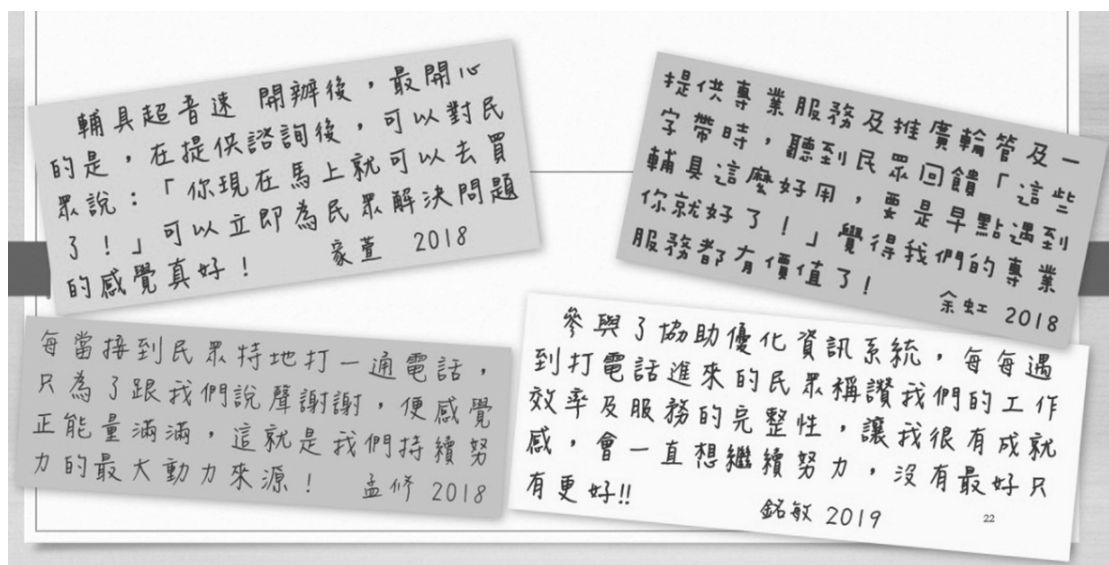 輔具超音速 開辦後，最開心
的是，在提供諮詢後，可以對民
眾說：「你現在馬上就可以去買
了！」可以立即為民眾解決問題
的感覺真好！ 家萱 2018
提供專業服務及推廣輪管及一
字帶時，聽到民眾回饋「這些
輔具這麼好用，要是早點遇到
你就好了！」覺得我們的專業
服務都有價值了！ 余虹 2018
每當接到民眾特地打一通電話，
只為了跟我們說聲謝謝，便感覺
正能量滿滿，這就是我們持續努
力的最大動力來源！ 孟修 2018
參與了協助優化資訊系統，每每遇
到打電話進來的民眾稱讚我們的工作
效率及服務的完整性，讓我很有成就
感，會一直想繼續努力，沒有最好只
有更好!! 銘敏 2019
22